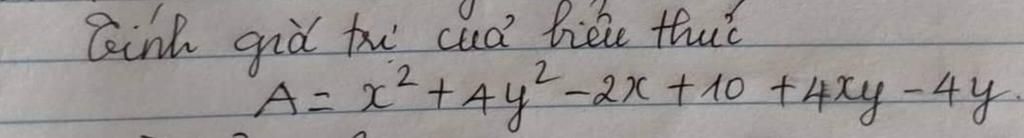 Tính giá trị của biểu thức
A = x² + 4y² - 2x + 10 + 4xy - 4y.